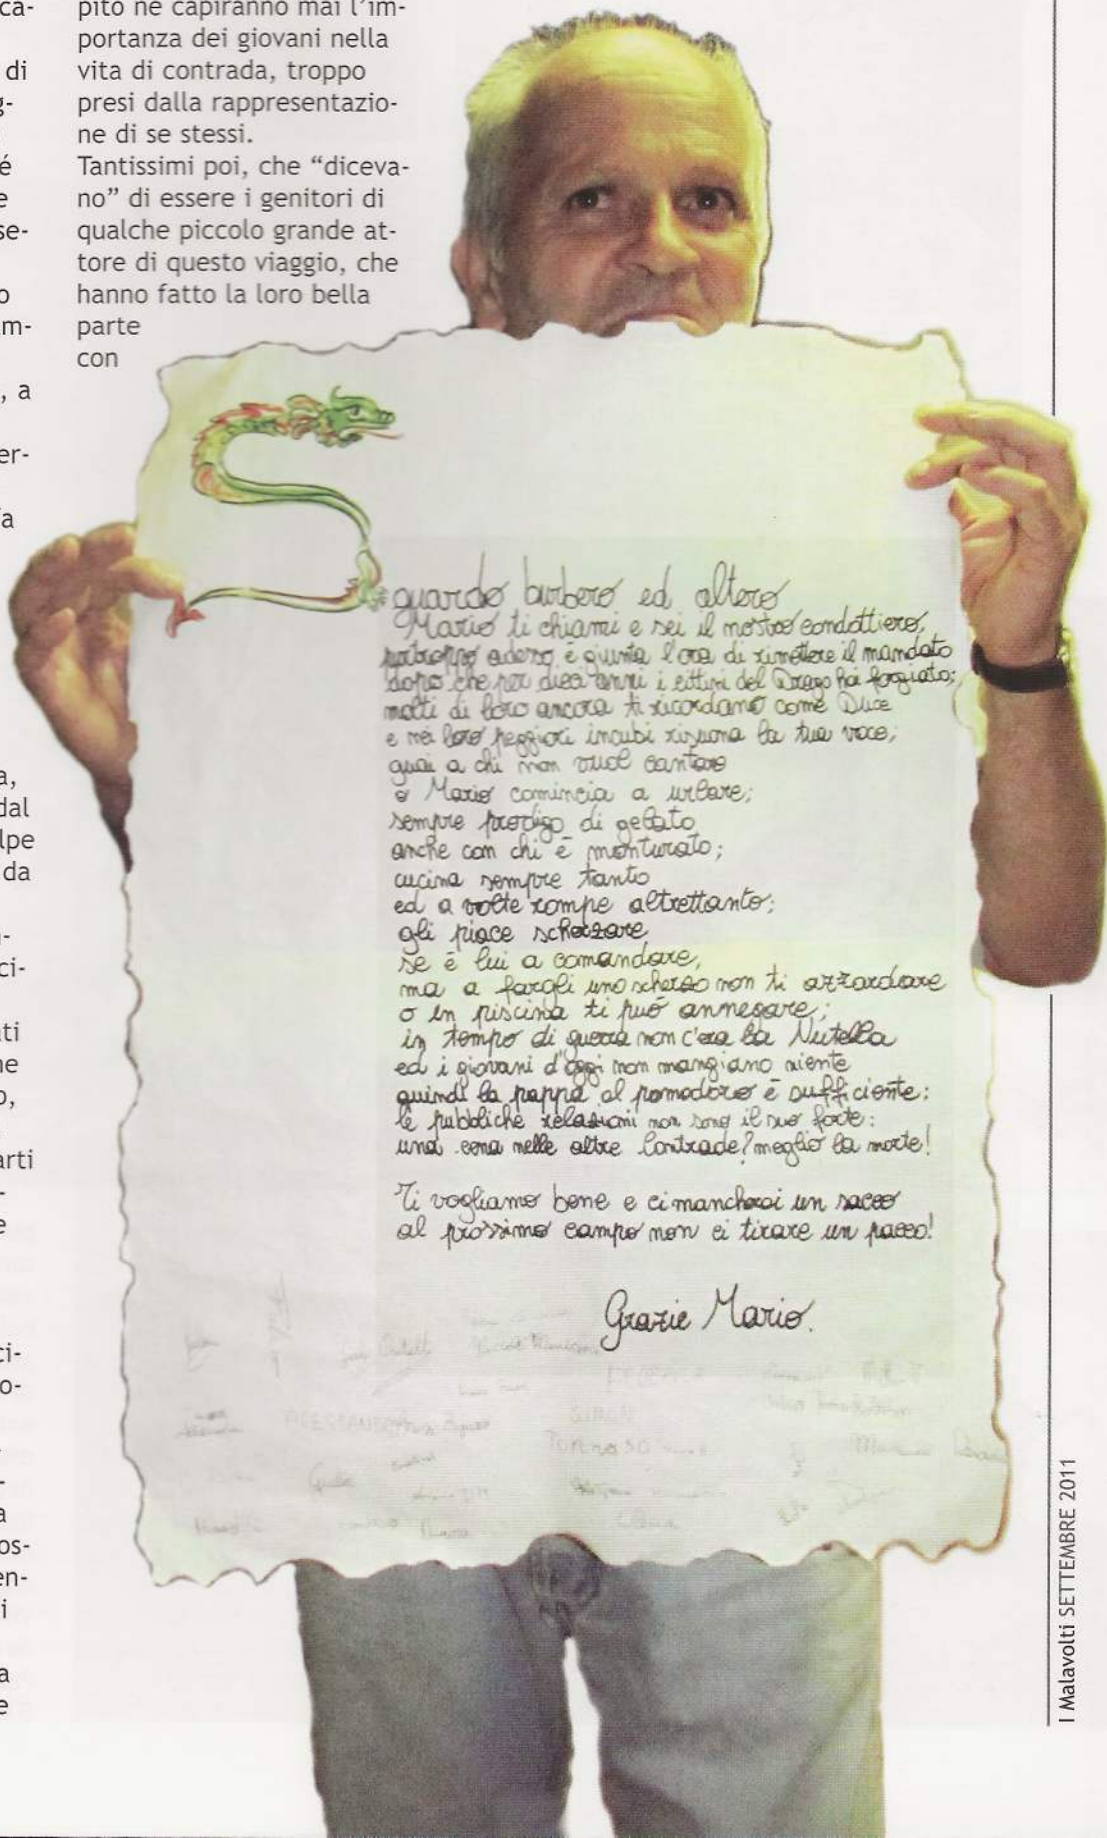 ca-
di
g-
é
e
se-
o
m-
, a
er-
a
a,
dal
lpe
da
-
ci-
ti
ne
o,
arti
-
e
ci-
o-
-
a
os-
en-
i
a
e
pito né capiranno mai l'im-
portanza dei giovani nella
vita di contrada, troppo
presi dalla rappresentazio-
ne di se stessi.
Tantissimi poi, che "diceva-
no" di essere i genitori di
qualche piccolo grande at-
tore di questo viaggio, che
hanno fatto la loro bella
parte
con
Sguardo burbero ed altero
Mario ti chiami e sei il nostro condottiero,
purtroppo adesso è giunta l'ora di rimettere il mandato
dopo che per dieci anni i cittini del Drago hai forgiato;
molti di loro ancora ti ricordano come Duce
e nei loro peggiori incubi risuona la tua voce;
guai a chi non vuol cantare
o Mario comincia a urlare;
sempre prodigo di gelato
anche con chi è monturato;
cucina sempre tanto
ed a volte rompe altrettanto;
gli piace scherzare
se è lui a comandare,
ma a fargli uno scherzo non ti azzardare
o in piscina ti può annegare;
in tempo di guerra non c'era la Nutella
ed i giovani d'oggi non mangiano niente
quindi la pappa al pomodoro è sufficiente;
le pubbliche relazioni non sono il suo forte:
una cena nelle altre Contrade? meglio la morte!
Ti vogliamo bene e ci mancherai un sacco
al prossimo campo non ci tirare un pacco!
Grazie Mario.
SIMON
TOMMASO
I Malavolti SETTEMBRE 2011